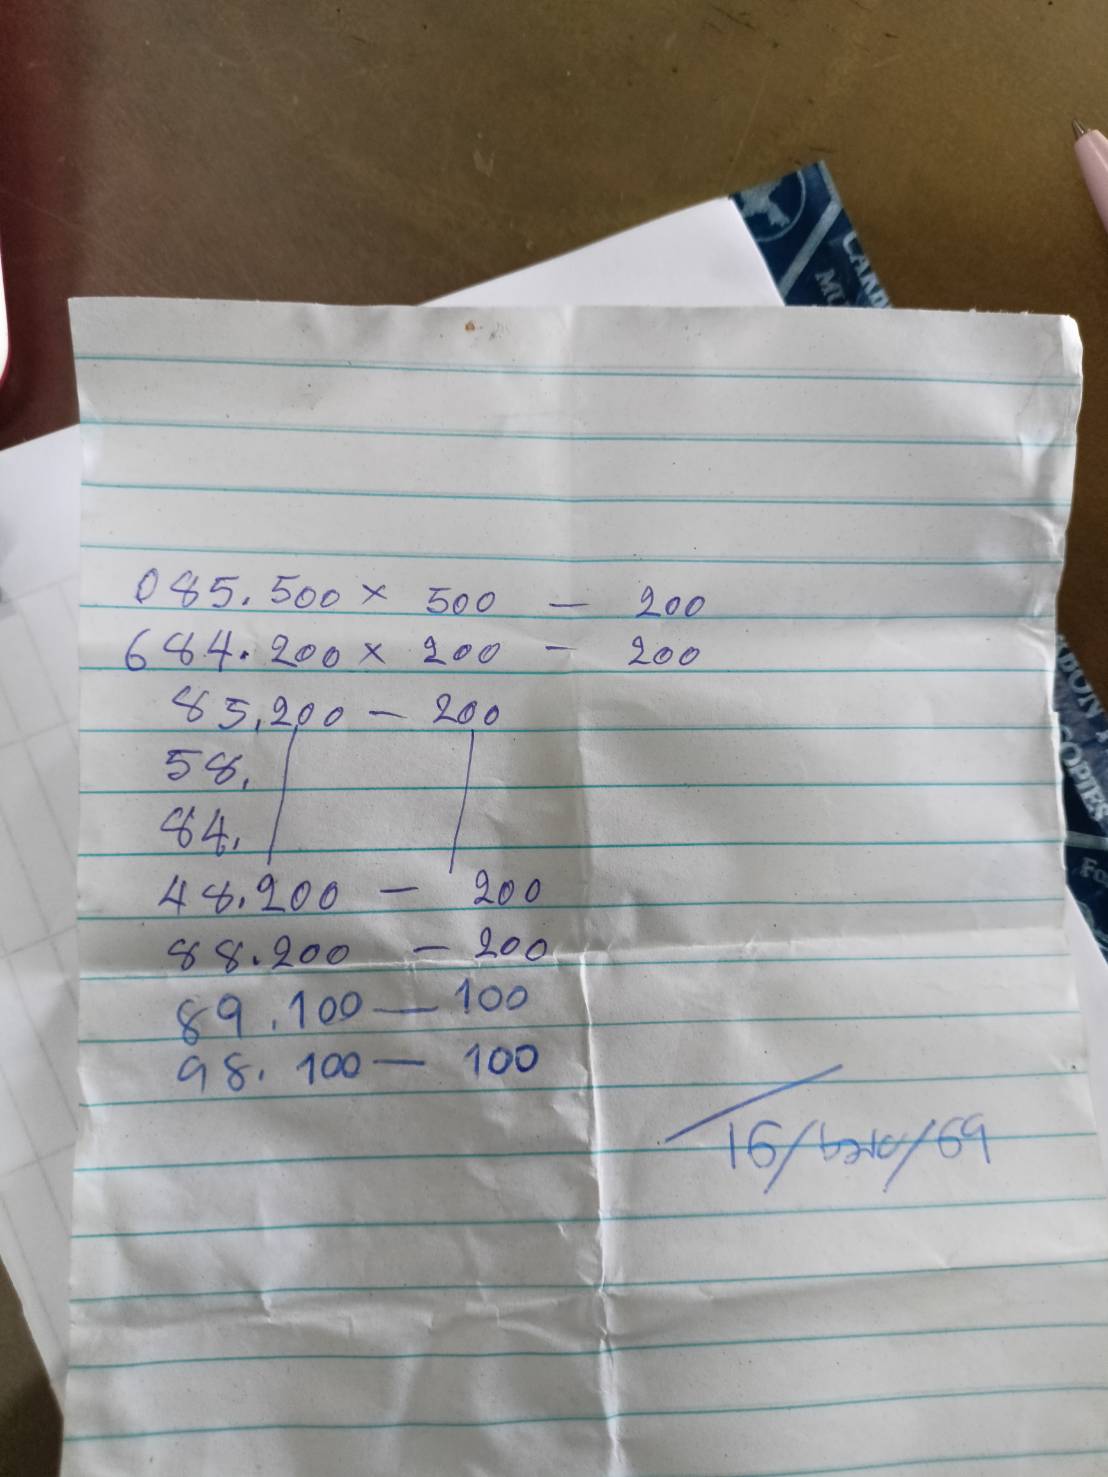 085. 500 × 500 — 200
684. 200 × 200 — 200
85. 200 — 200
58.
84.
48. 200 — 200
88. 200 — 200
89. 100 — 100
98. 100 — 100
16/เมย/69
COPIES